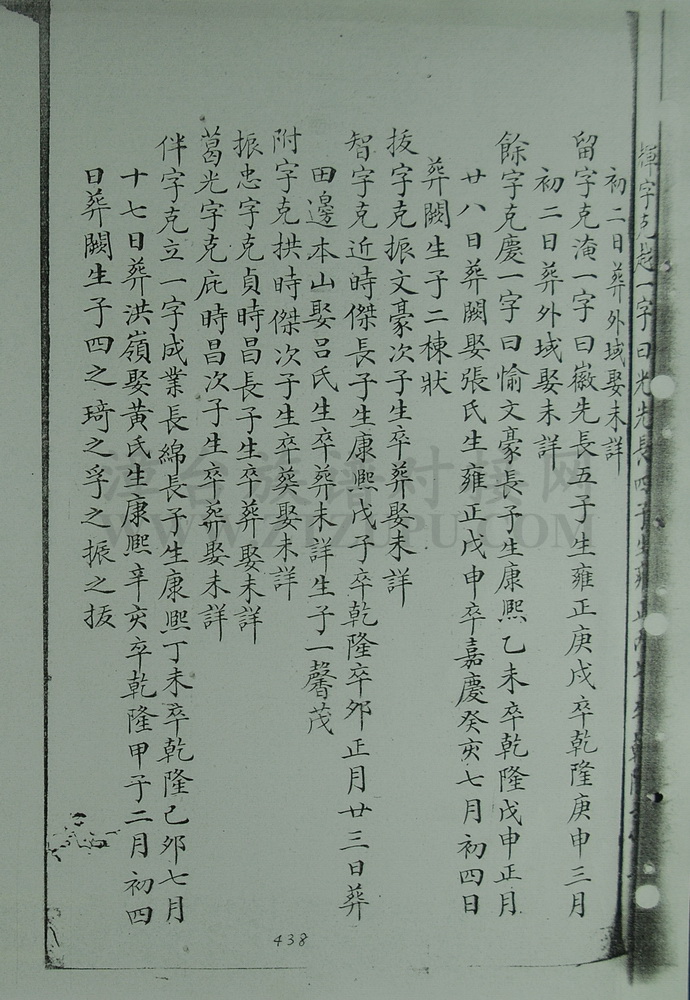 字克 一字曰光先長四子生雍正
初二日葬外域娶未詳
留字克淹一字曰徽先長五子生雍正庚戌卒乾隆庚申三月
初二日葬外域娶未詳
餘字克慶一字曰愉文豪長子生康熙乙未卒乾隆戊申正月
廿八日葬闕娶張氏生雍正戊申卒嘉慶癸亥七月初四日
葬闕生子二棟狀
拔字克振文豪次子生卒葬娶未詳
智字克近時傑長子生康熙戊子卒乾隆辛夘正月廿三日葬
田邊本山娶呂氏生卒葬未詳生子一馨茂
附字克拱時傑次子生卒葬娶未詳
振忠字克貞時昌長子生卒葬娶未詳
葛光字克庇時昌次子生卒葬娶未詳
伴字克立一字成業長綿長子生康熙丁未卒乾隆己夘七月
十七日葬洪嶺娶黃氏生康熙辛亥卒乾隆甲子二月初四
日葬闕生子四之琦之孚之振之拔
438
WWW.ZTZUPU.COM